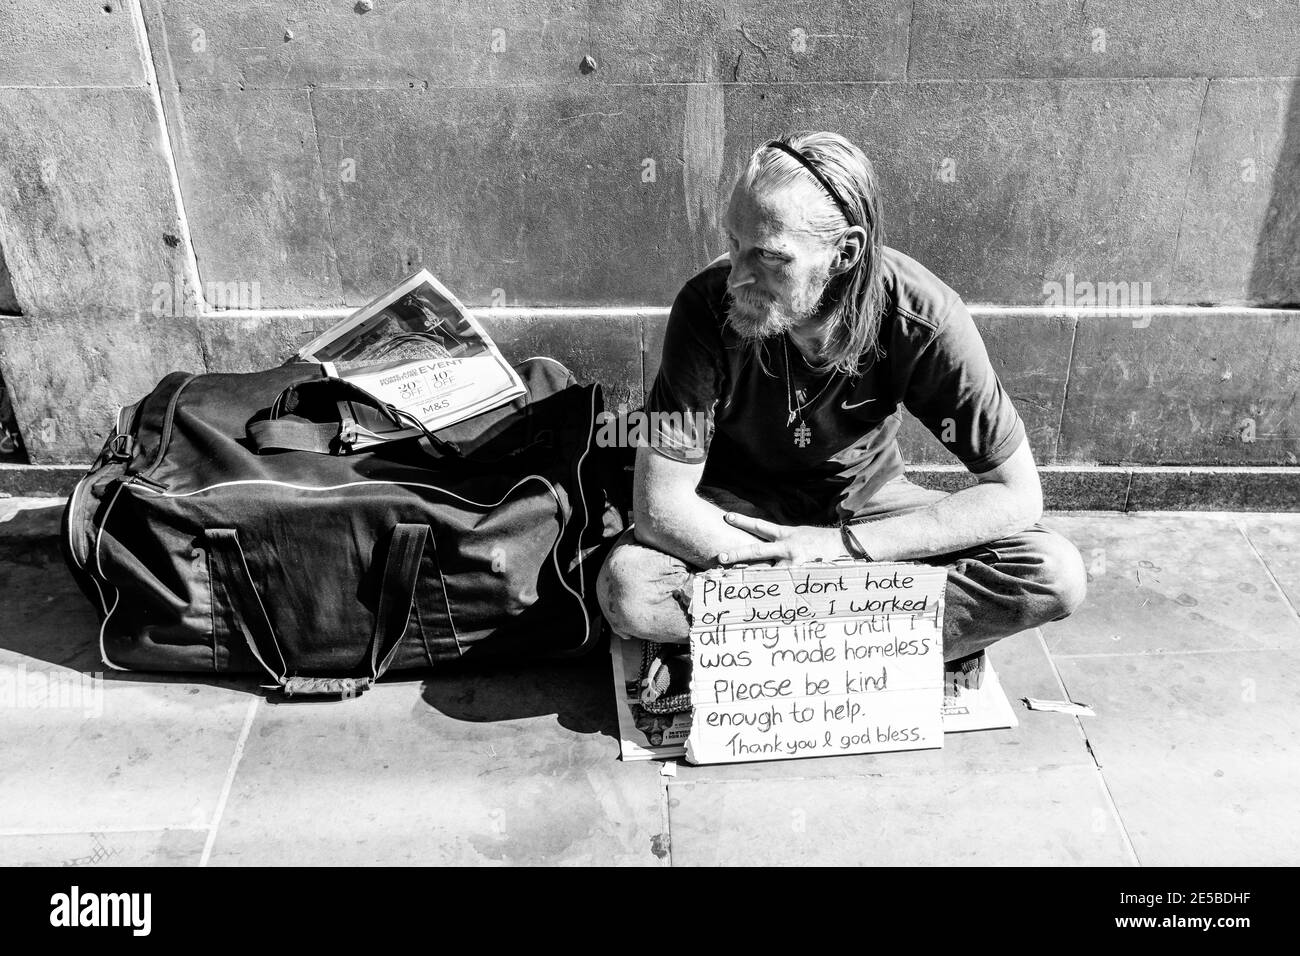 EVENT
20% 40%
OFF OFF
M&S
Please dont hate
or Judge, I worked
all my life until I
was made homeless
Please be kind
enough to help.
Thank you & god bless.
alamy
Image ID: 2E5BDHF
www.alamy.com